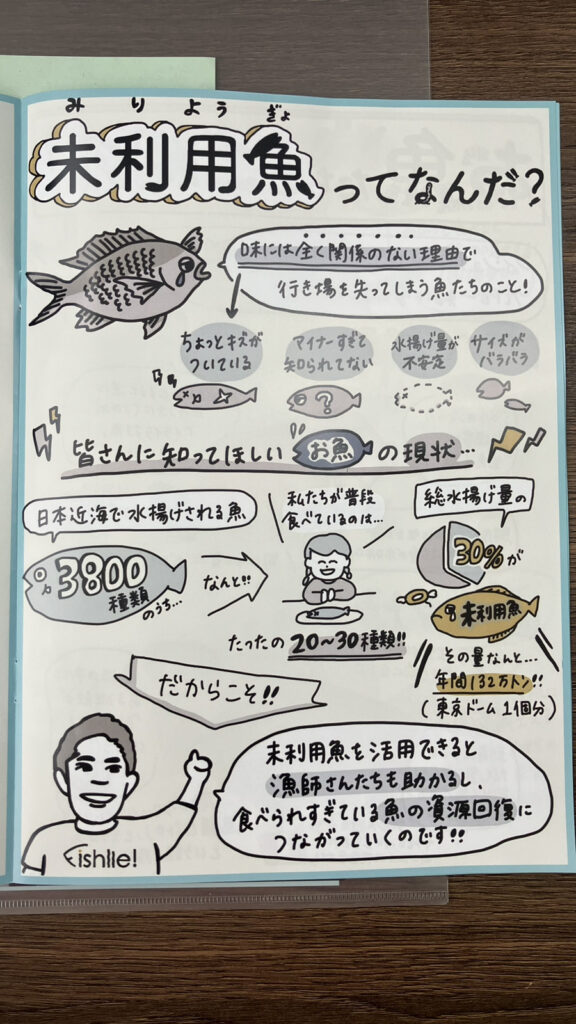 みりようぎょ
未利用魚ってなんだ?
味には全く関係のない理由で
行き場を失ってしまう魚たちのこと!
ちょっとキズが
ついている
マイナーすぎて
知られてない
?
水揚げ量が
不安定
サイズが
バラバラ
皆さんに知ってほしいお魚の現状…
日本近海で水揚げされる魚
3800
種類
のうち…
なんと!!
私たちが普段
食べているのは…
たったの20〜30種類!!
総水揚げ量の
30%が
未利用魚
その量なんと…
年間132万トン!!
(東京ドーム1個分)
だからこそ!!
未利用魚を活用できると
漁師さんたちも助かるし、
食べられすぎている魚の資源回復に
つながっていくのです!!
Fishlle!